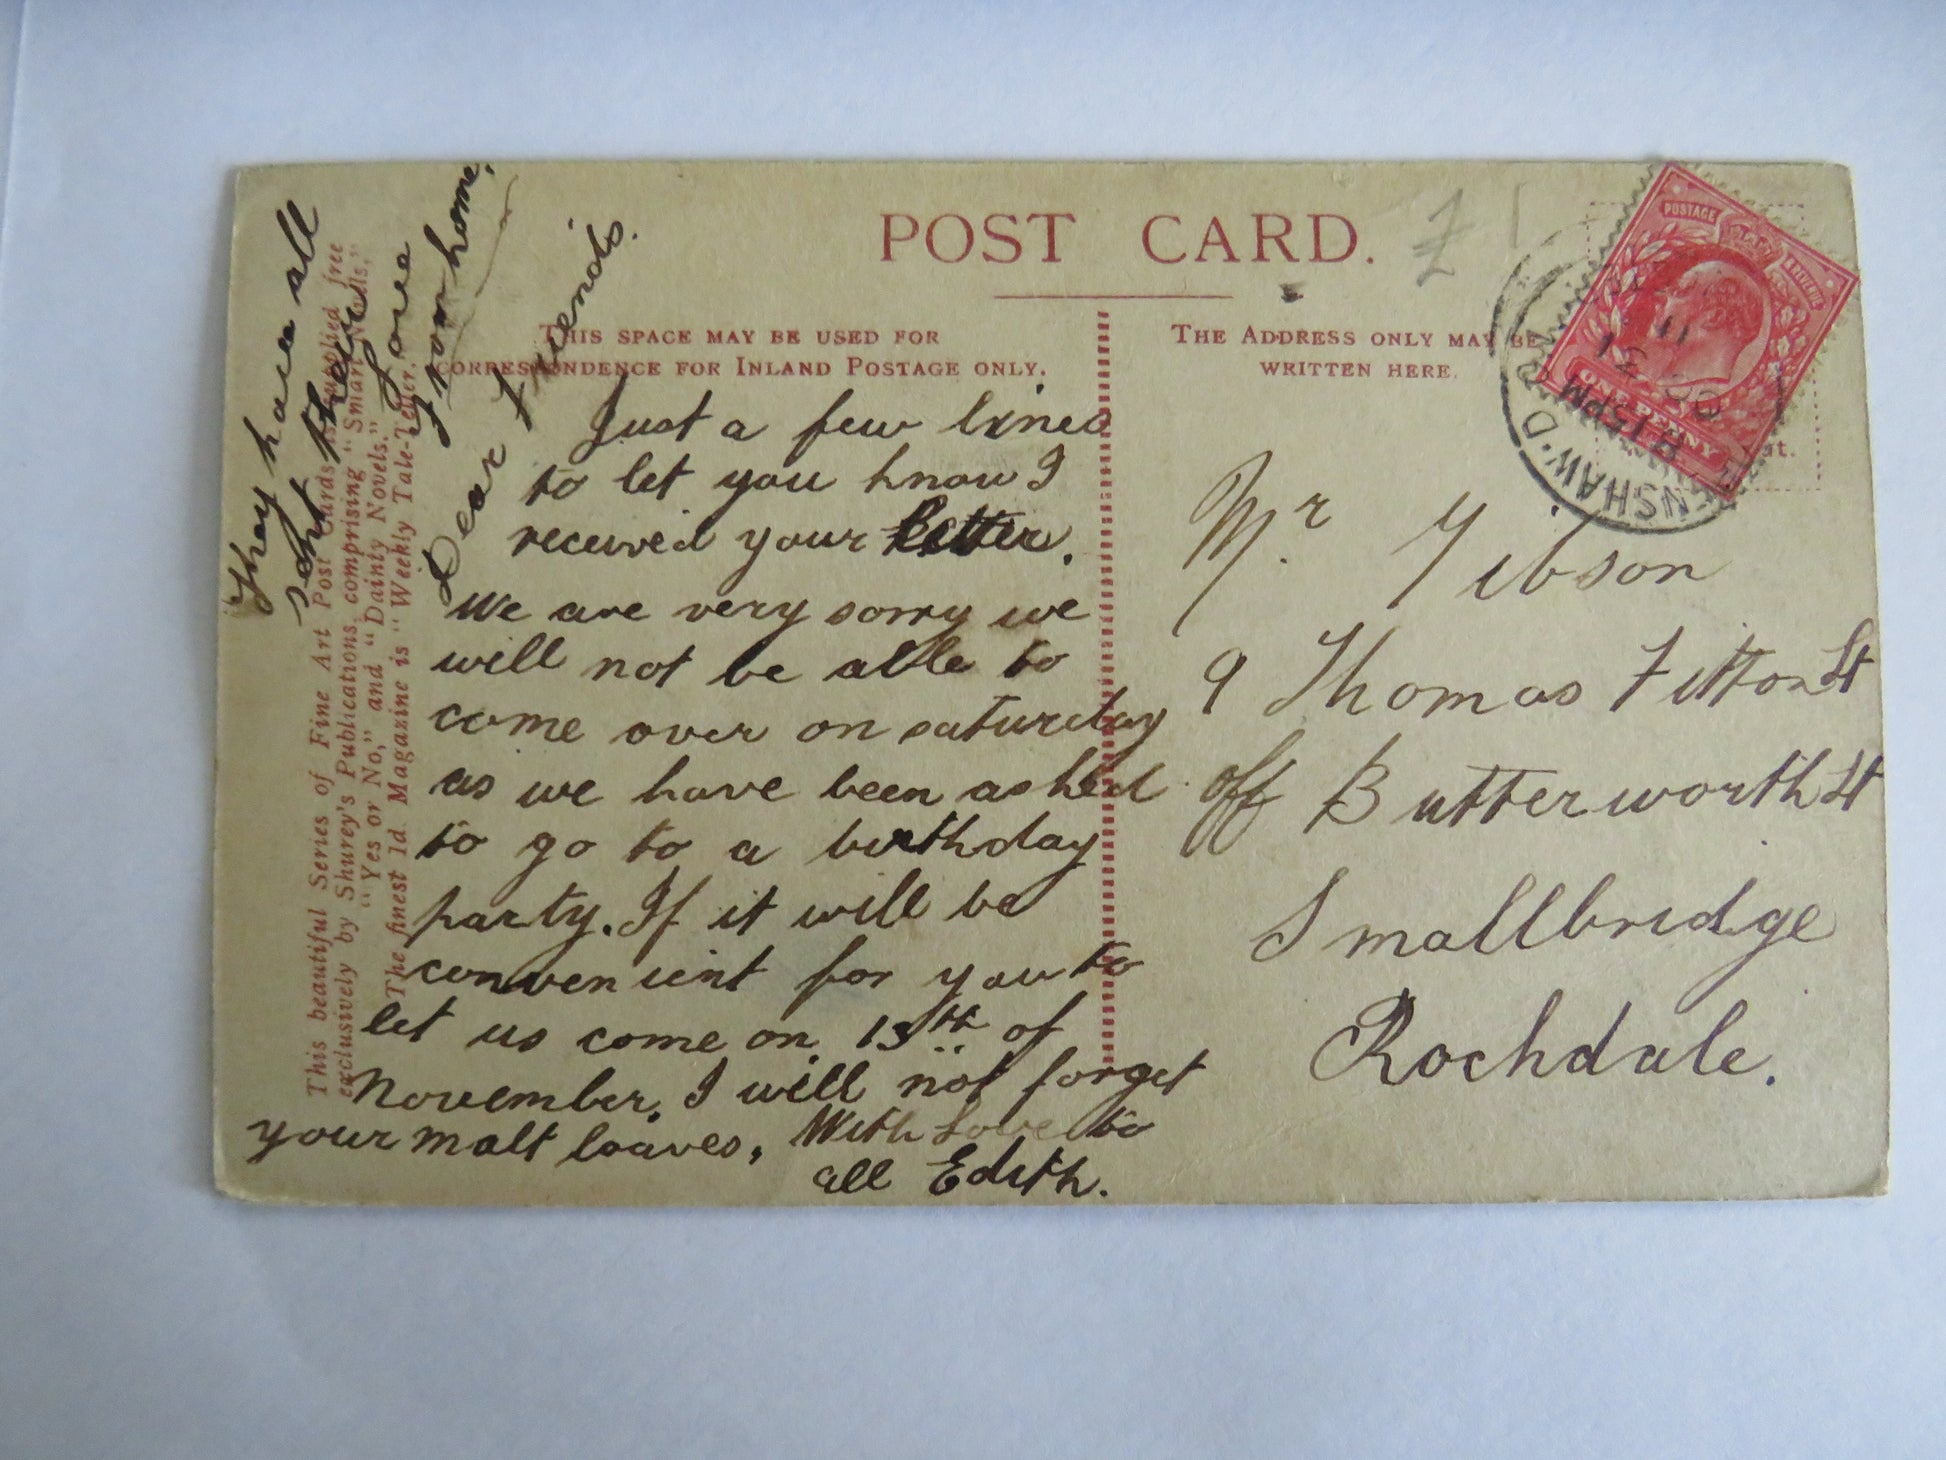 POST CARD.
THIS SPACE MAY BE USED FOR
CORRESPONDENCE FOR INLAND POSTAGE ONLY.
THE ADDRESS ONLY MAY BE
WRITTEN HERE.
This beautiful Series of Fine Art Post Cards is supplied free
exclusively by Shurey's Publications, comprising "Smart Novels,"
"Yes or No," and "Dainty Novels."
The finest 1d. Magazine is "Weekly Tale-Teller."
Dear Friends.
Just a few lines
to let you know I
received your letter.
We are very sorry we
will not be able to
come over on saturday
as we have been asked
to go to a birthday
party. If it will be
convenient for you to
let us come on 13th of
November. I will not forget
your malt loaves, With Love to
all Edith.
They have all
sent their
love
from home,
Mr Gibson
9 Thomas Fitton St
off Butterworth St
Smallbridge
Rochdale.
POSTAGE REVENUE
ONE PENNY
NSHAW.D
8.15PM
OC 31
11